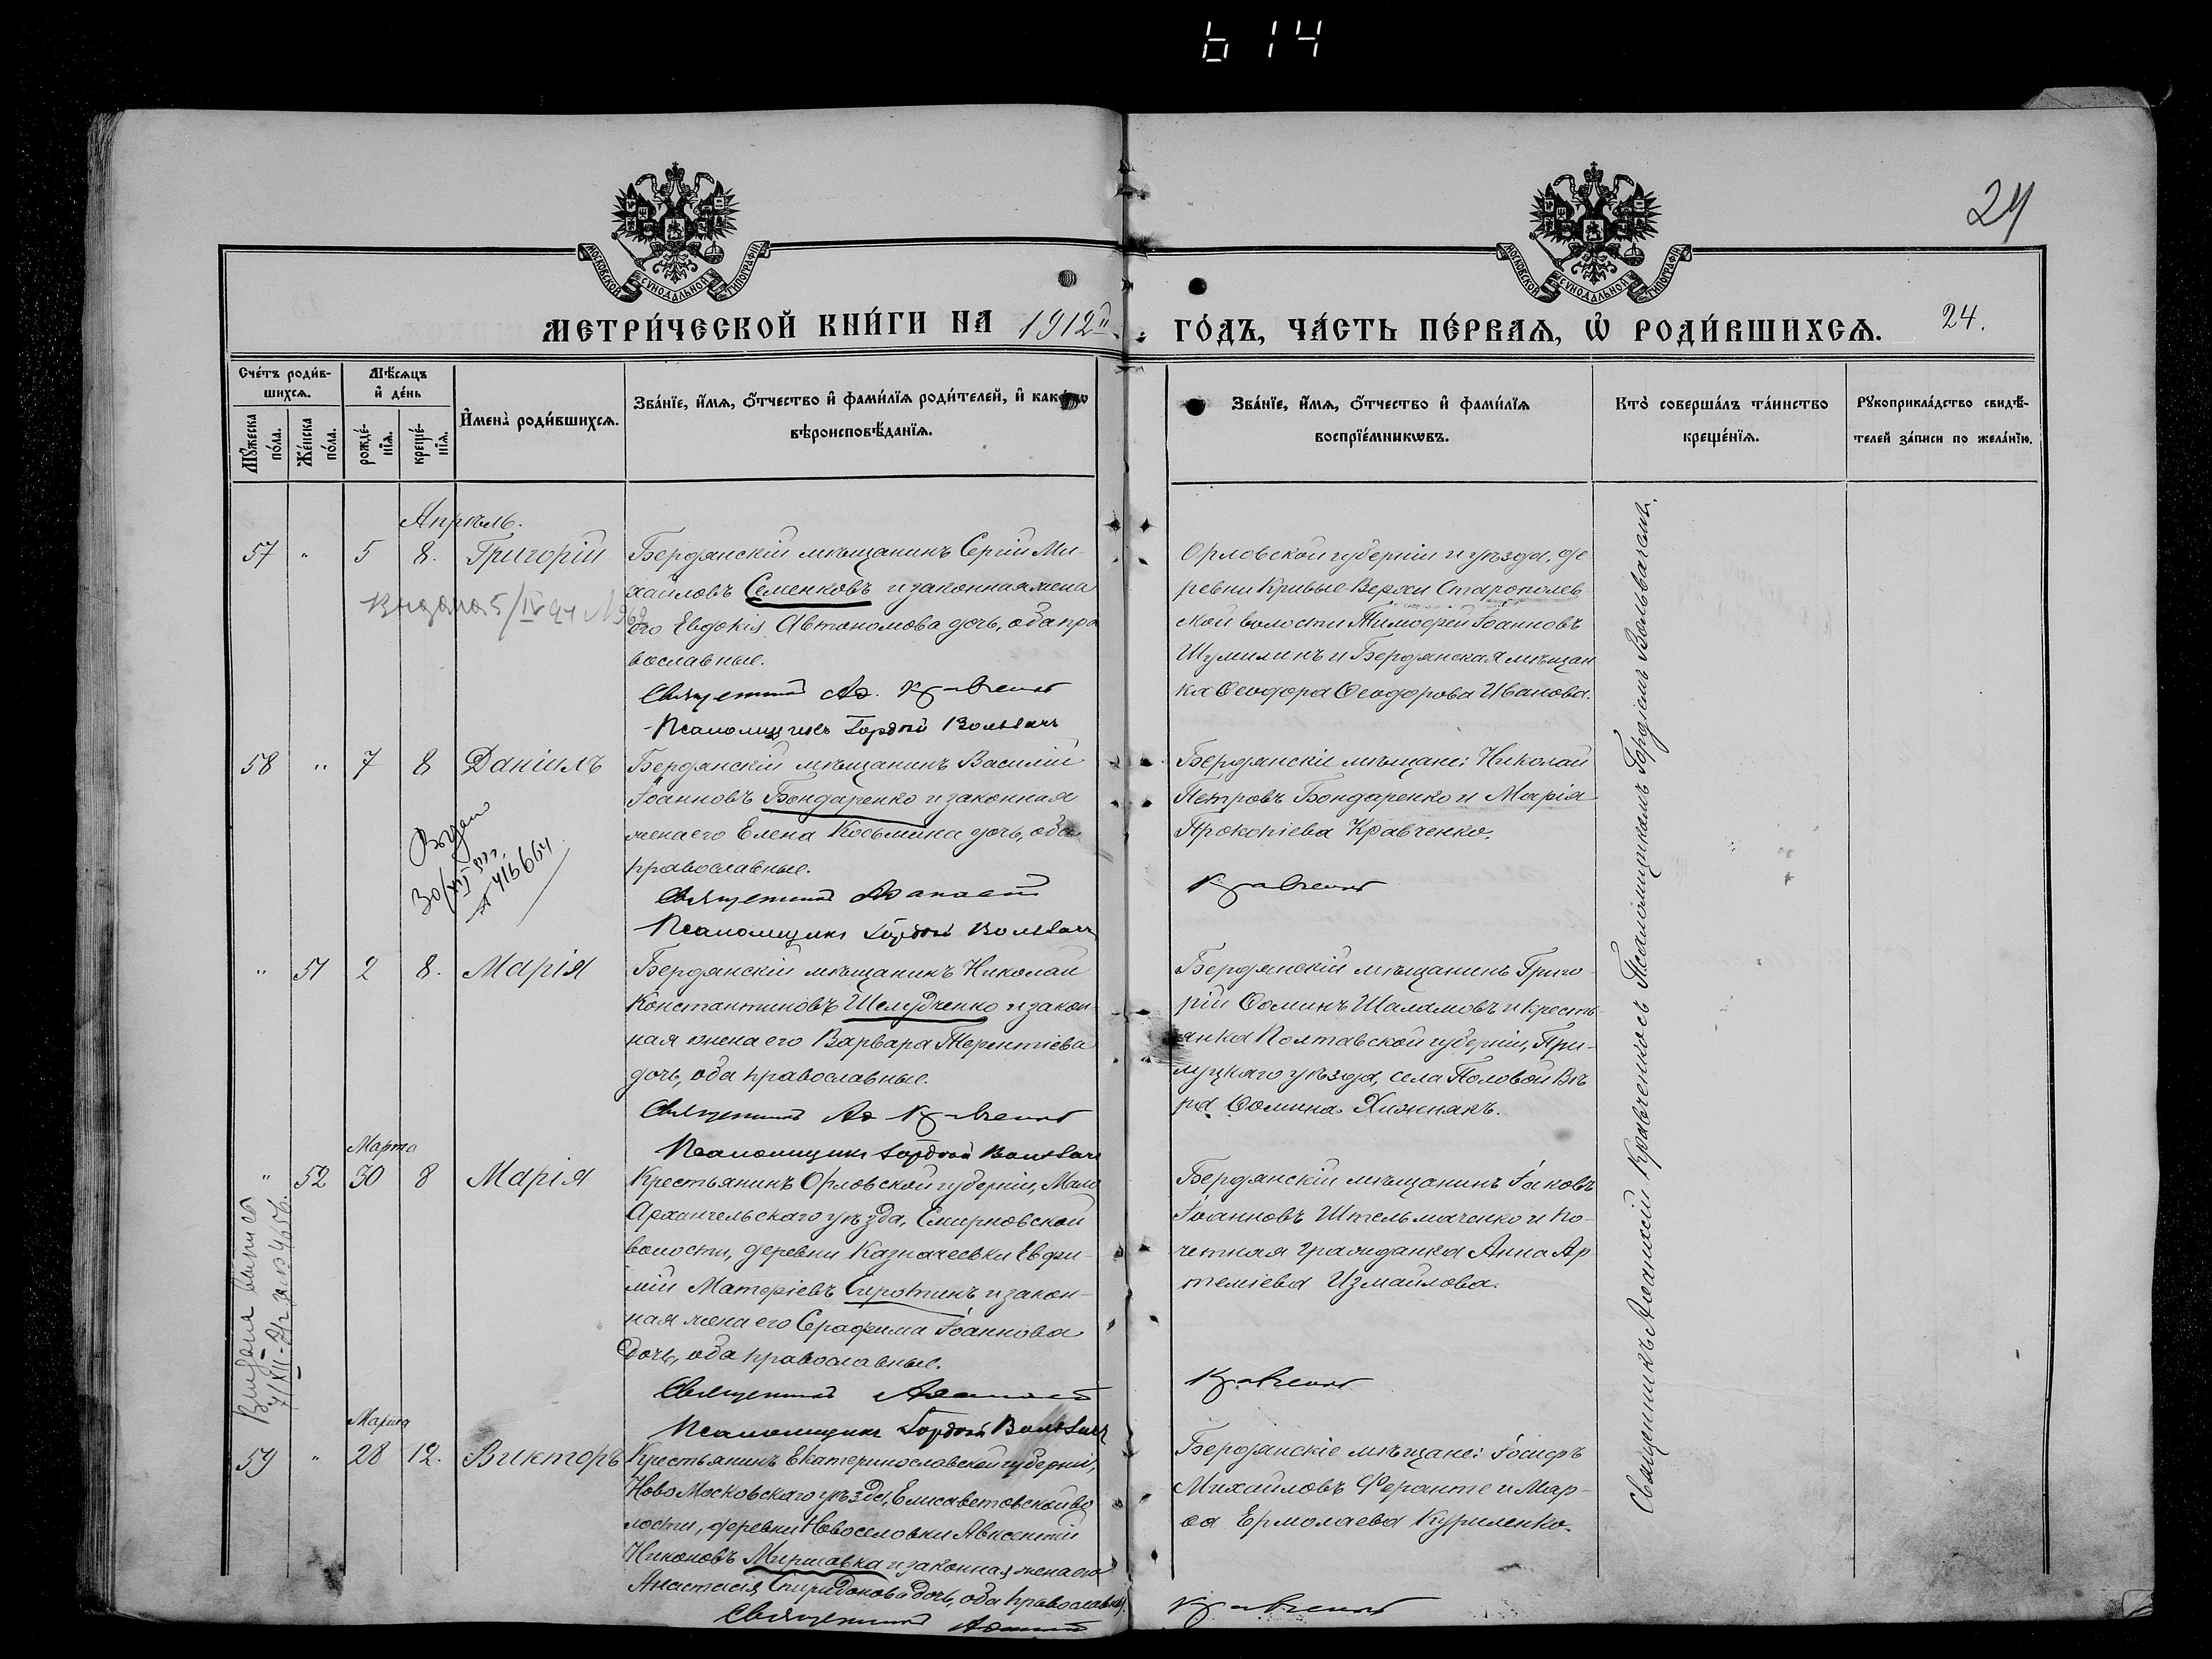 614
24
МОСКОВСКОЙ СѴНОДАЛЬНОЙ ТИПОГРАФІИ
МОСКОВСКОЙ СѴНОДАЛЬНОЙ ТИПОГРАФІИ
МЕТРИ́ЧЕСКОЙ КНИ́ГИ НА 1912й
ГО́ДЪ, ЧА́СТЬ ПЕ́РВАѦ, Ѡ РОДИ́ВШИХСѦ.
24.
Сче́тъ роди́в-
шихсѧ.
Мꙋжеска по́ла.
Же́нска по́ла.
Мѣ́сяцъ
и҆ де́нь
рожде́-
нїѧ.
креще́-
нїѧ.
И҆мена̀ роди́вшихсѧ.
Зва́нїе, и҆́мѧ, ѻ҆́тчество и҆ фами́лїѧ роди́телей, и҆ како́гѡ
вѣроисповѣ́данїѧ.
Зва́нїе, и҆́мѧ, ѻ҆́тчество и҆ фами́лїѧ
воспрїе́мникѡвъ.
Кто̀ соверша́лъ та́инство
креще́нїѧ.
Рꙋкоприкла́дство свидѣ́-
телей за́писи по жела́нїю.
Апрѣль.
57 " 5 8. Григорій
Бердянскій мѣщанинъ Сергій Ми-
хайловъ Семенковъ и законная жена
его Евдокія Автономова дочь, оба пра
вославные.
Священникъ Аѳ. Кравченко
Псаломщикъ Гордій Вольвачъ
Орловской губерніи и уѣзда, де
ревни Кривые-Верхи Старополев
ской волости Тимофей Іоанновъ
Шумилинъ и Бердянская мѣщан
ка Ѳеодора Ѳеодорова Иванова.
Выдана 5/IV
58 " 7 8 Даніилъ
Бердянскій мѣщанинъ Василій
Іоанновъ Бондаренко и законная
жена его Елена Косьмина дочь, оба
православные.
Священникъ Аѳанасій
Псаломщикъ Гордій Вольвачъ
Бердянскіе мѣщане: Николай
Петровъ Бондаренко и Марія
Прокопіева Кравченко.
Кравченко
Выдан
30/XII
416664
" 51 2 8. Марія
Бердянскій мѣщанинъ Николай
Константиновъ Шелудченко и закон-
ная жена его Варвара Терентіева
дочь, оба православные.
Священникъ Аѳ Кравченко
Псаломщикъ Гордій Вольвачъ
Бердянскій мѣщанинъ Григо-
рій Ѳоминъ Шаламовъ и кресть-
янка Полтавской губерніи, При-
луцкаго уѣзда, села Половой Вѣ
ра Ѳомина Хижнякъ.
Марта
" 52 30 8 Марія
Крестьянинъ Орловской губерніи, Мало
Архангельскаго уѣзда, Смирновской
волости, деревни Казначеевки Евфи-
мій Матфіевъ Сиротинъ и закон-
ная жена его Серафима Іоаннова
дочь, оба православные.
Священникъ Аѳанасій
Псаломщикъ Гордій Вольвачъ
Бердянскій мѣщанинъ Іаковъ
Іоанновъ Штельмаченко и по-
четная гражданка Анна Ар
теміева Измайлова.
Кравченко
Марта
59 " 28 12. Викторъ
Крестьянинъ Екатеринославской губерніи,
Ново Московскаго уѣзда, Елисаветовской во
лости, деревни Новоселовки Авксентій
Никоновъ Миршавка и законная жена его
Анастасія Спиридонова дочь, оба православны.
Священникъ Аѳанасій
Бердянскіе мѣщане: Іосифъ
Михайловъ Феранте и Мар-
ѳа Ермолаева Куриленко.
Кравченко
Священникъ Аѳанасій Кравченко съ Псаломщикомъ Гордіемъ Вольвачемъ.